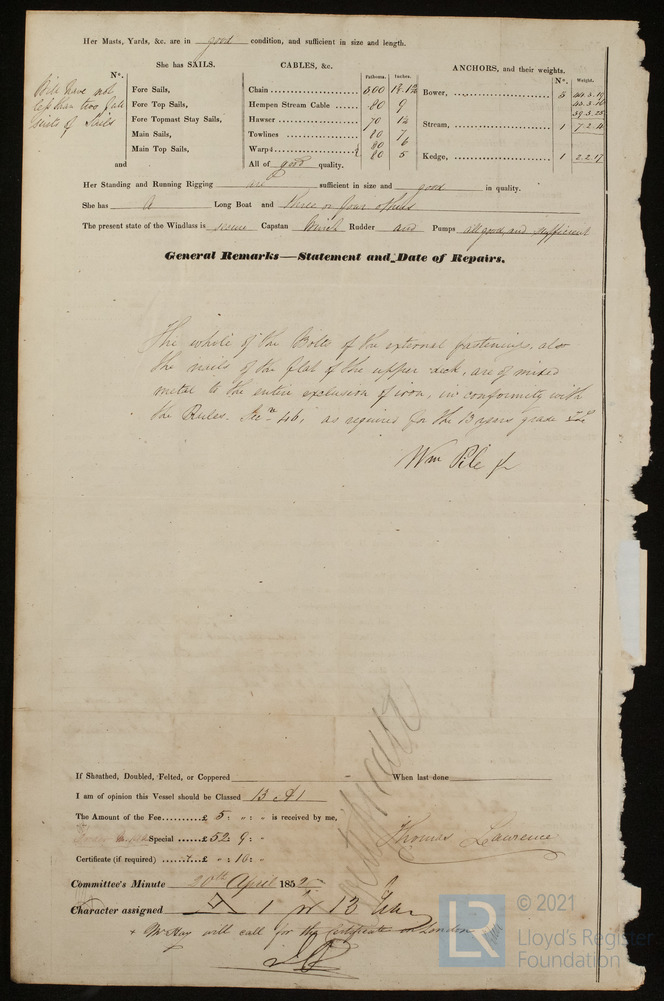 Her Masts, Yards, &c. are in good condition, and sufficient in size and length.
She has SAILS.
Nº.
Will have not
less than two full
suits of Sails
Fore Sails,
Fore Top Sails,
Fore Topmast Stay Sails,
Main Sails,
Main Top Sails,
and
CABLES, &c.
Fathoms. Inches.
Chain 300
Hempen Stream Cable 80 9
Hawser 70
Towlines 80 7
Warps 80 6
80 5
All of good quality.
ANCHORS, and their weights.
Nº. Weight.
Bower, 3
Stream, 1 7.2.4
Kedge, 1 2.2.17
Her Standing and Running Rigging are sufficient in size and good in quality.
She has A Long Boat and three or four others
The present state of the Windlass is Capstan Winch Rudder and Pumps all good and sufficient
General Remarks—Statement and Date of Repairs.
The whole of the Bolts of the external fastenings, also
the nails of the flat of the upper deck, are of mixed
metal to the entire exclusion of iron, in conformity with
the Rules Secn 46, as required for the 13 years grade
Wm Pile Jr
If Sheathed, Doubled, Felted, or Coppered - When last done
I am of opinion this Vessel should be Classed 13 A1
The Amount of the Fee £ 5 : „ : „ is received by me,
Special £ 52 : 9 : -
Thomas Lawrence
Certificate (if required) £ „ : 10 : -
Committee's Minute 20th April 1852
Character assigned A 1 for 13
+ Mr Hay will call for the Certificate in London
LR
© 2021
Lloyd's Register
Foundation